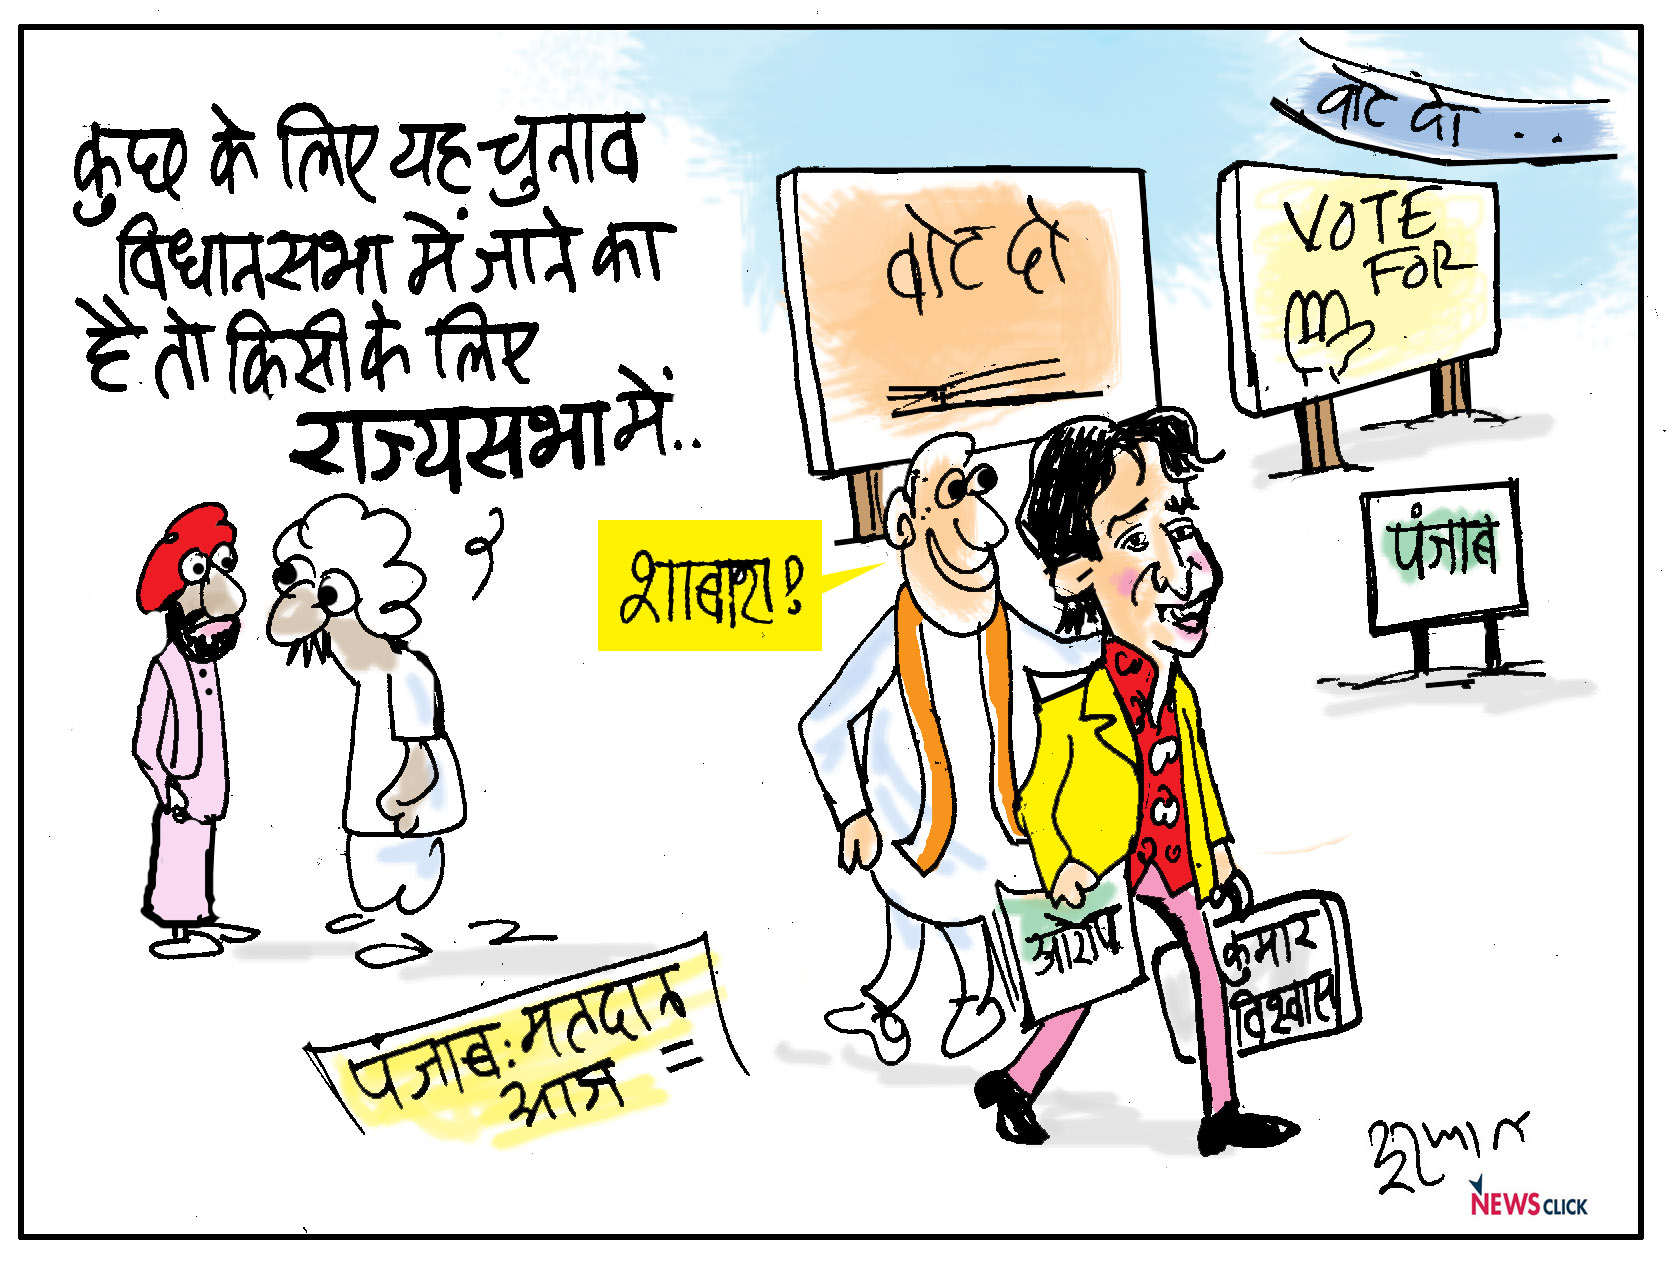 कुछ के लिए यह चुनाव
विधानसभा में जाने का
है तो किसी के लिए
राज्यसभा में..
वोट दो..
वोट दो
VOTE
FOR
पंजाब
शाबाश!
आरोप
कुमार
विश्वास
पंजाब: मतदान
आज
इरफान
NEWSCLICK